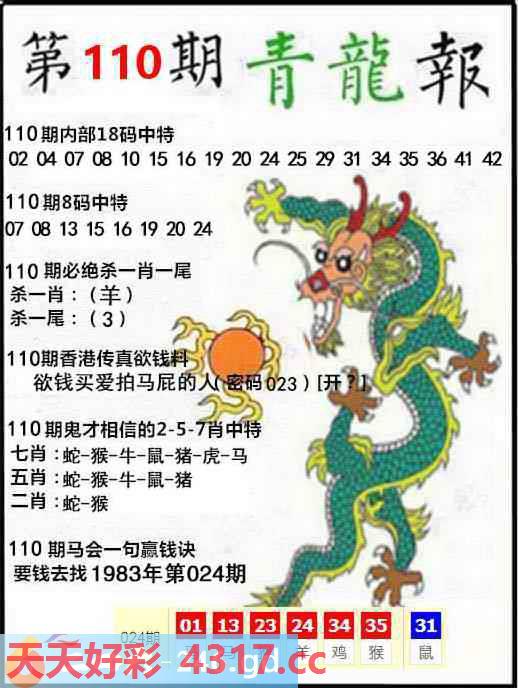 第110期青龍報
110期内部18码中特
02 04 07 08 10 15 16 19 20 24 25 29 31 34 35 36 41 42
110期8码中特
07 08 13 15 16 19 20 24
110期必绝杀一肖一尾
杀一肖：（羊）
杀一尾：（3）
110期香港传真欲钱料
欲钱买爱拍马屁的人(密码023）[开？]
110期鬼才相信的2-5-7肖中特
七肖：蛇-猴-牛-鼠-猪-虎-马
五肖：蛇-猴-牛-鼠-猪
二肖：蛇-猴
110期马会一句赢钱诀
要钱去找1983年第024期
024期 01 13 23 24 34 35 31
羊 鸡 猴 鼠
天天好彩 4317.cc